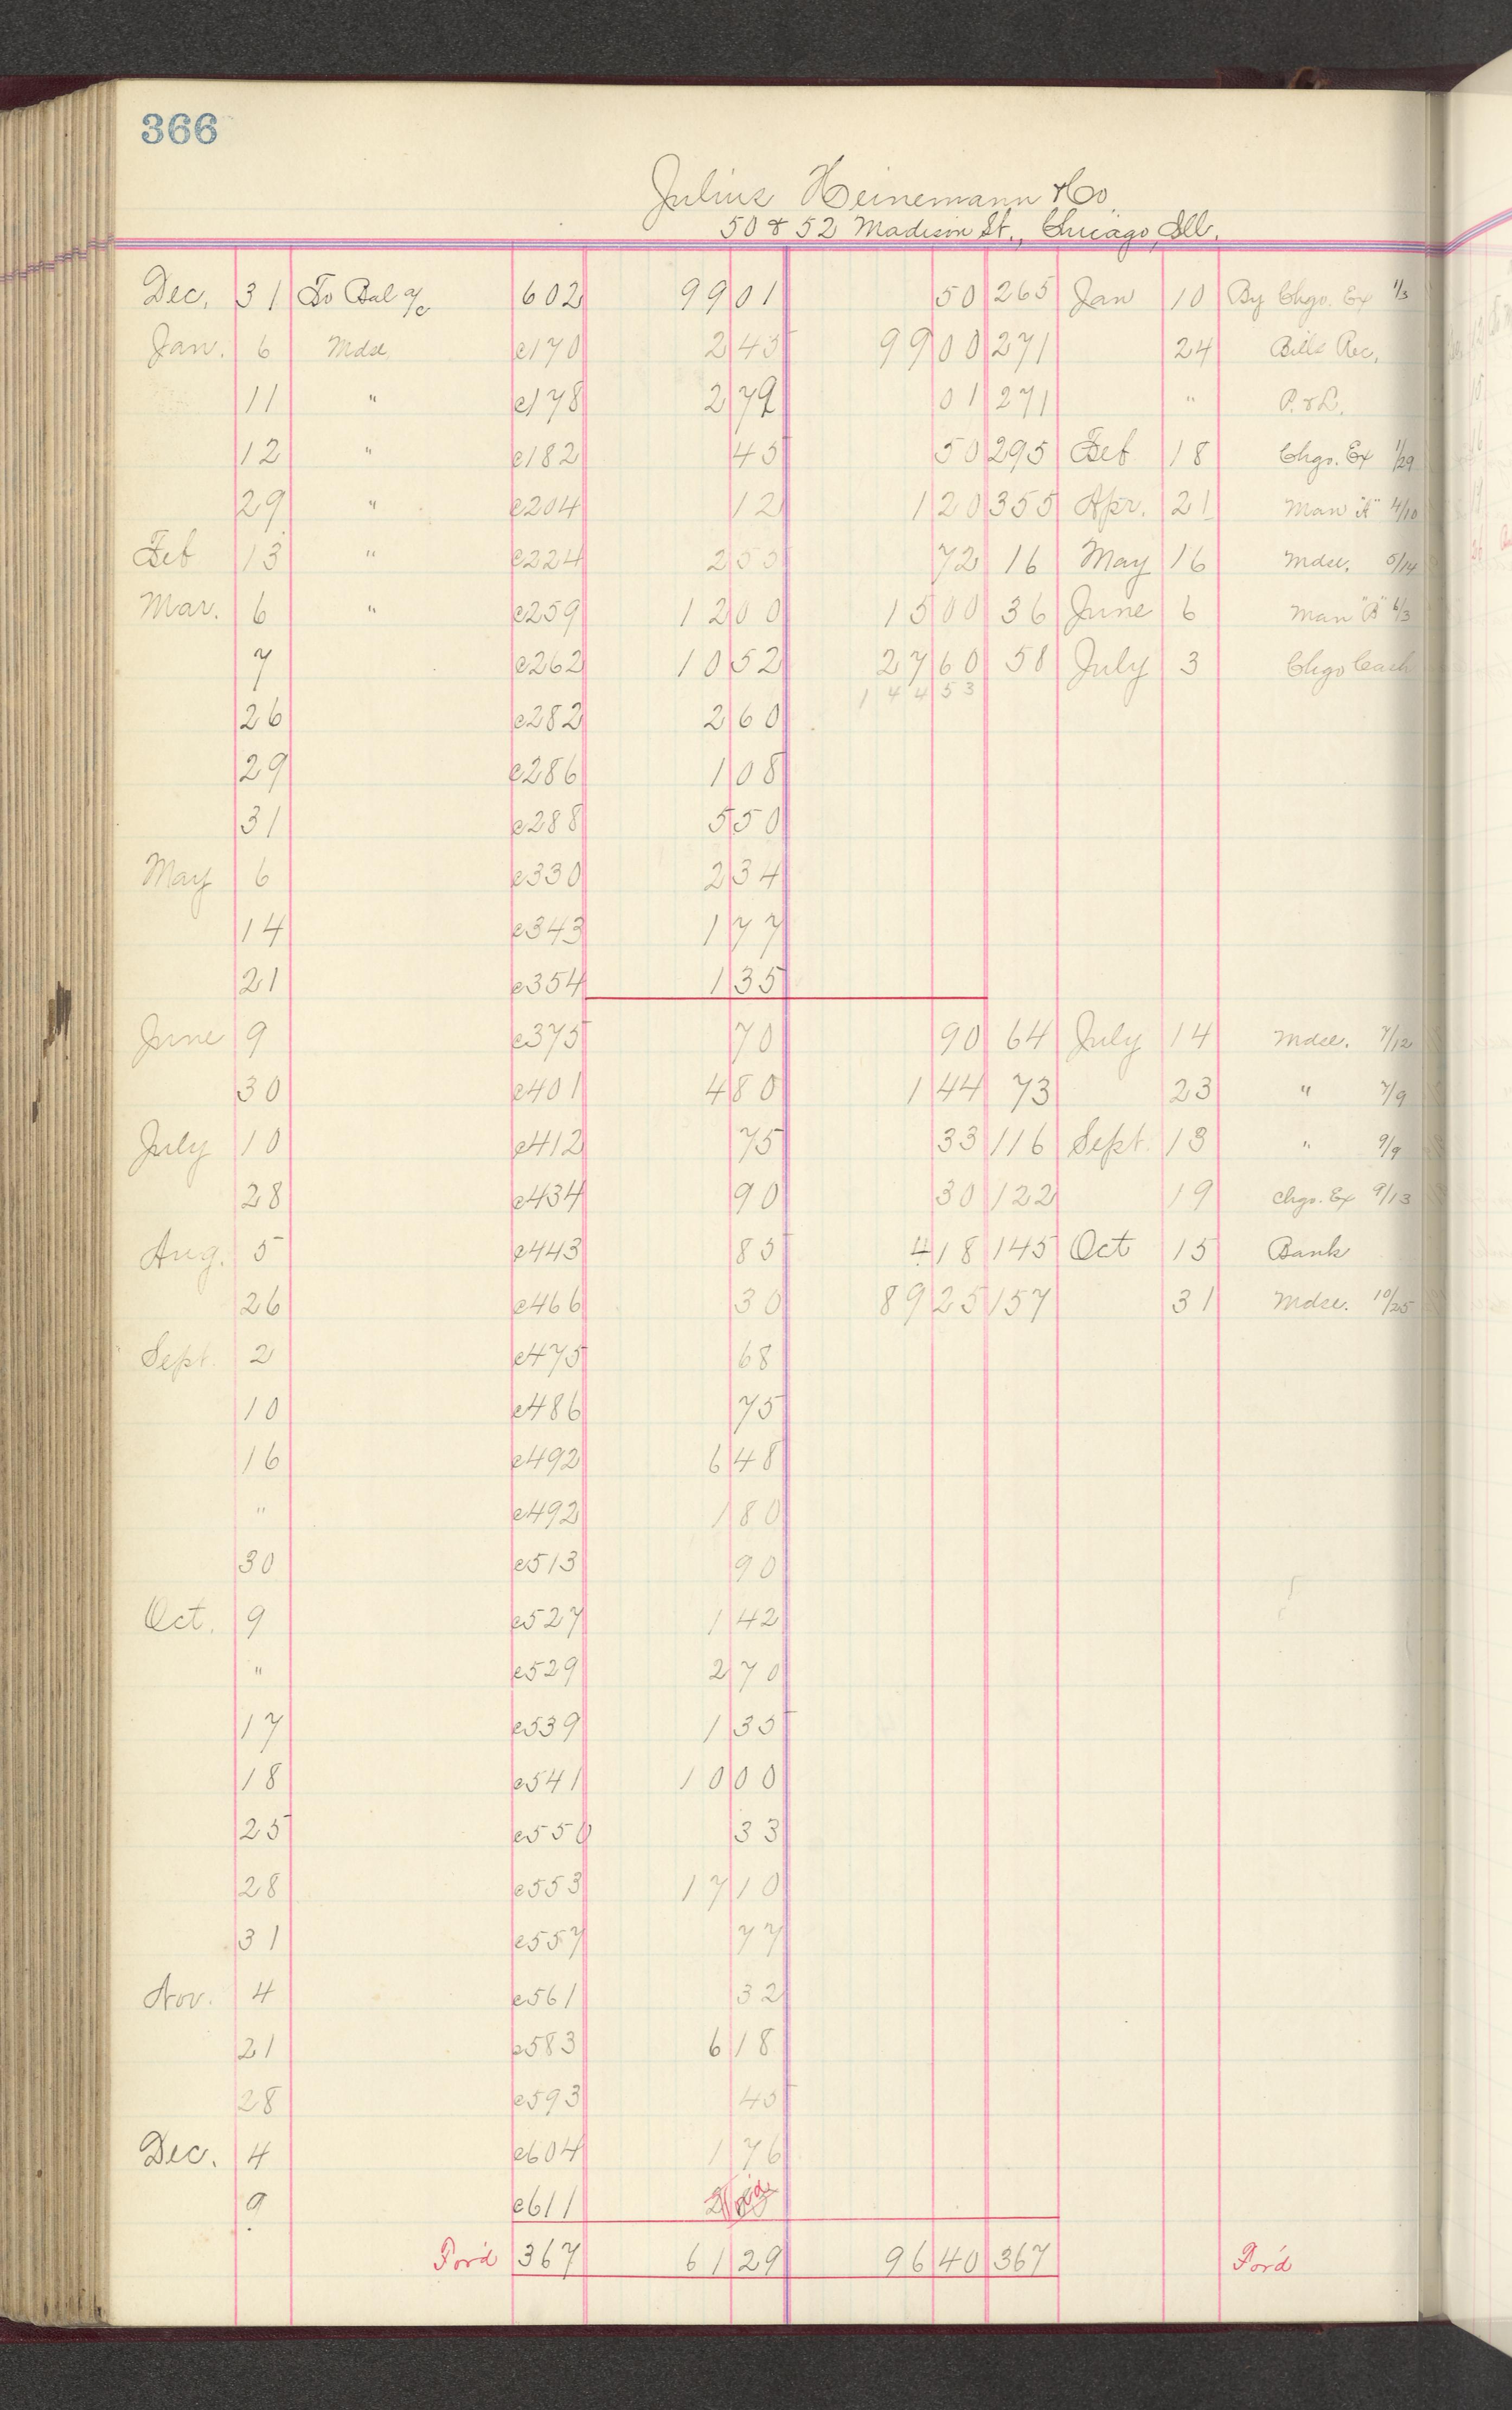 366
Julius Heinemann & Co.
50 & 52 Madison St., Chicago, Ill.
Dec. 31 To Bal a/c 602 99 01 50 265 Jan 10 By Chgo. Ex 1/3
Jan. 6 Mdse. c170 2 45 99 00 271 24 Bills Rec.
11 " c178 2 79 01 271 " P. & L.
12 " c182 45 50 295 Feb 18 Chgo. Ex 1/29
29 " c204 12 1 20 355 Apr. 21 Man "A" 4/10
Feb 13 " c224 2 55 72 16 May 16 Mdse. 5/14
Mar. 6 " c259 12 00 15 00 36 June 6 Man "B" 6/3
7 c262 10 52 27 60 58 July 3 Chgo Cash
144 53
26 c282 2 60
29 c286 1 08
31 c288 5 50
May 6 c330 2 34
14 c343 1 77
21 c354 1 35
June 9 c375 70 90 64 July 14 Mdse. 7/12
30 c401 4 80 1 44 73 23 " 7/9
July 10 c412 75 33 116 Sept. 13 " 9/9
28 c434 90 30 122 19 Chgo. Ex 9/13
Aug. 5 c443 85 4 18 145 Oct 15 Bank
26 c466 30 89 25 157 31 Mdse. 10/25
Sept. 2 c475 68
10 c486 75
16 c492 6 48
" c492 1 80
30 c513 90
Oct. 9 c527 1 42
" c529 2 70
17 c539 1 35
18 c541 10 00
25 c550 33
28 c553 17 10
31 c557 77
Nov. 4 c561 32
21 c583 6 18
28 c593 45
Dec. 4 c604 1 76
9 c611 Void
For'd 367 61 29 96 40 367 For'd